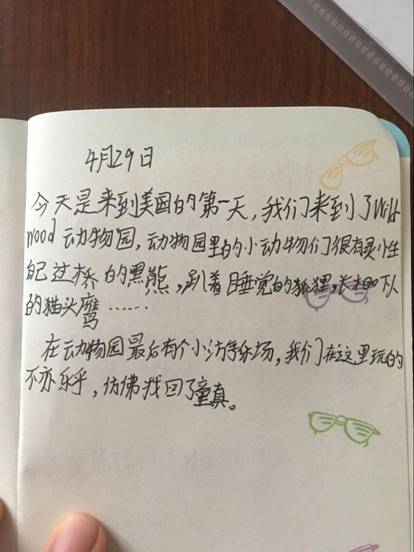 4月29日
今天是来到美国的第一天，我们来到了Wild
wood动物园，动物园里的小动物们很有灵性
自己过桥的黑熊，趴着睡觉的狐狸，长相吓人
的猫头鹰……
在动物园最后有个小游乐场，我们在这里玩的
不亦乐乎，仿佛找回了童真。